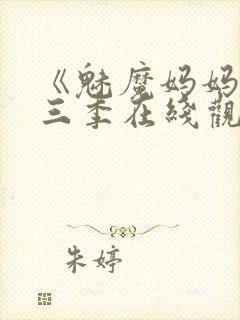 《魅魔妈妈
三季在线觀
朱婷